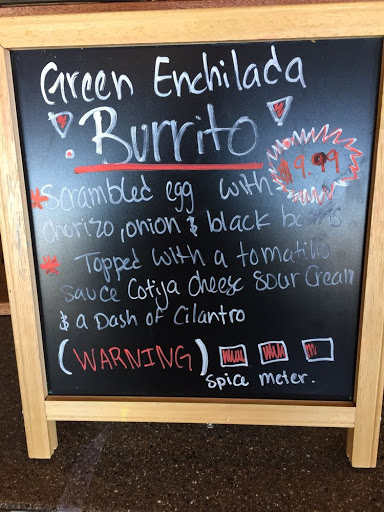 Green Enchilada
Burrito
$9.99
* Scrambled egg with
chorizo, onion & black beans
* Topped with a tomatillo
sauce Cotija cheese sour cream
& a Dash of Cilantro
(WARNING)
spice meter.